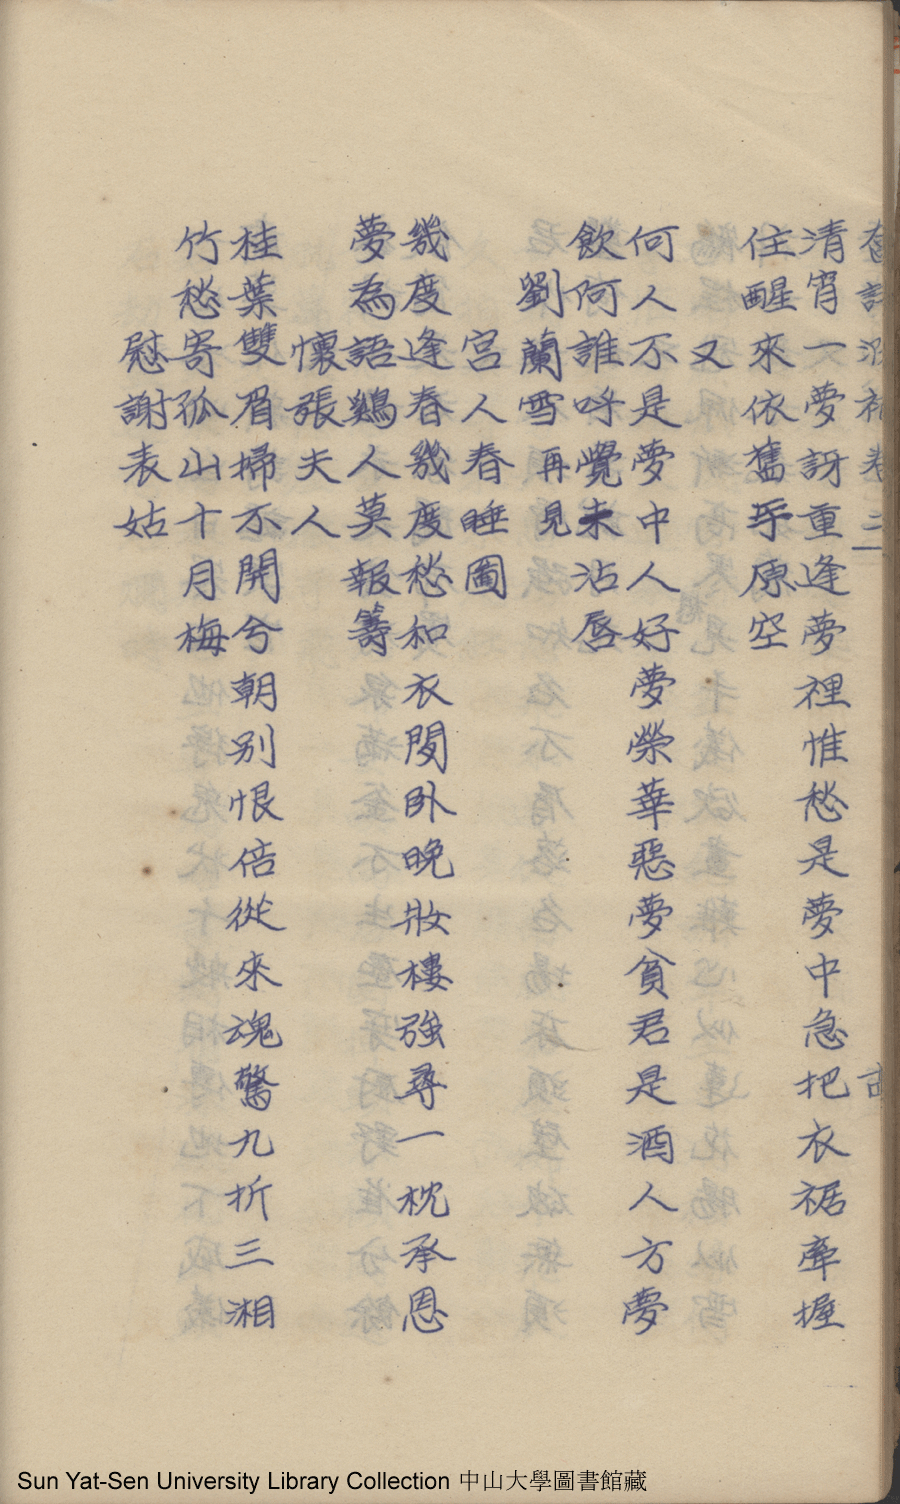 清宵一夢訝重逢夢裡惟愁是夢中急把衣裾牽握
住醒來依舊手原空
又
何人不是夢中人好夢榮華惡夢貧君是酒人方夢
飲阿誰呼覺未沾唇
劉蘭雪再見
宮人春睡圖
幾度逢春幾度愁和衣閒臥晚妝樓強尋一枕承恩
夢為語鷄人莫報籌
懷張夫人
桂葉雙眉掃不開兮朝別恨倍從來魂驚九折三湘
竹愁寄孤山十月梅
慰謝表姑
Sun Yat-Sen University Library Collection 中山大學圖書館藏